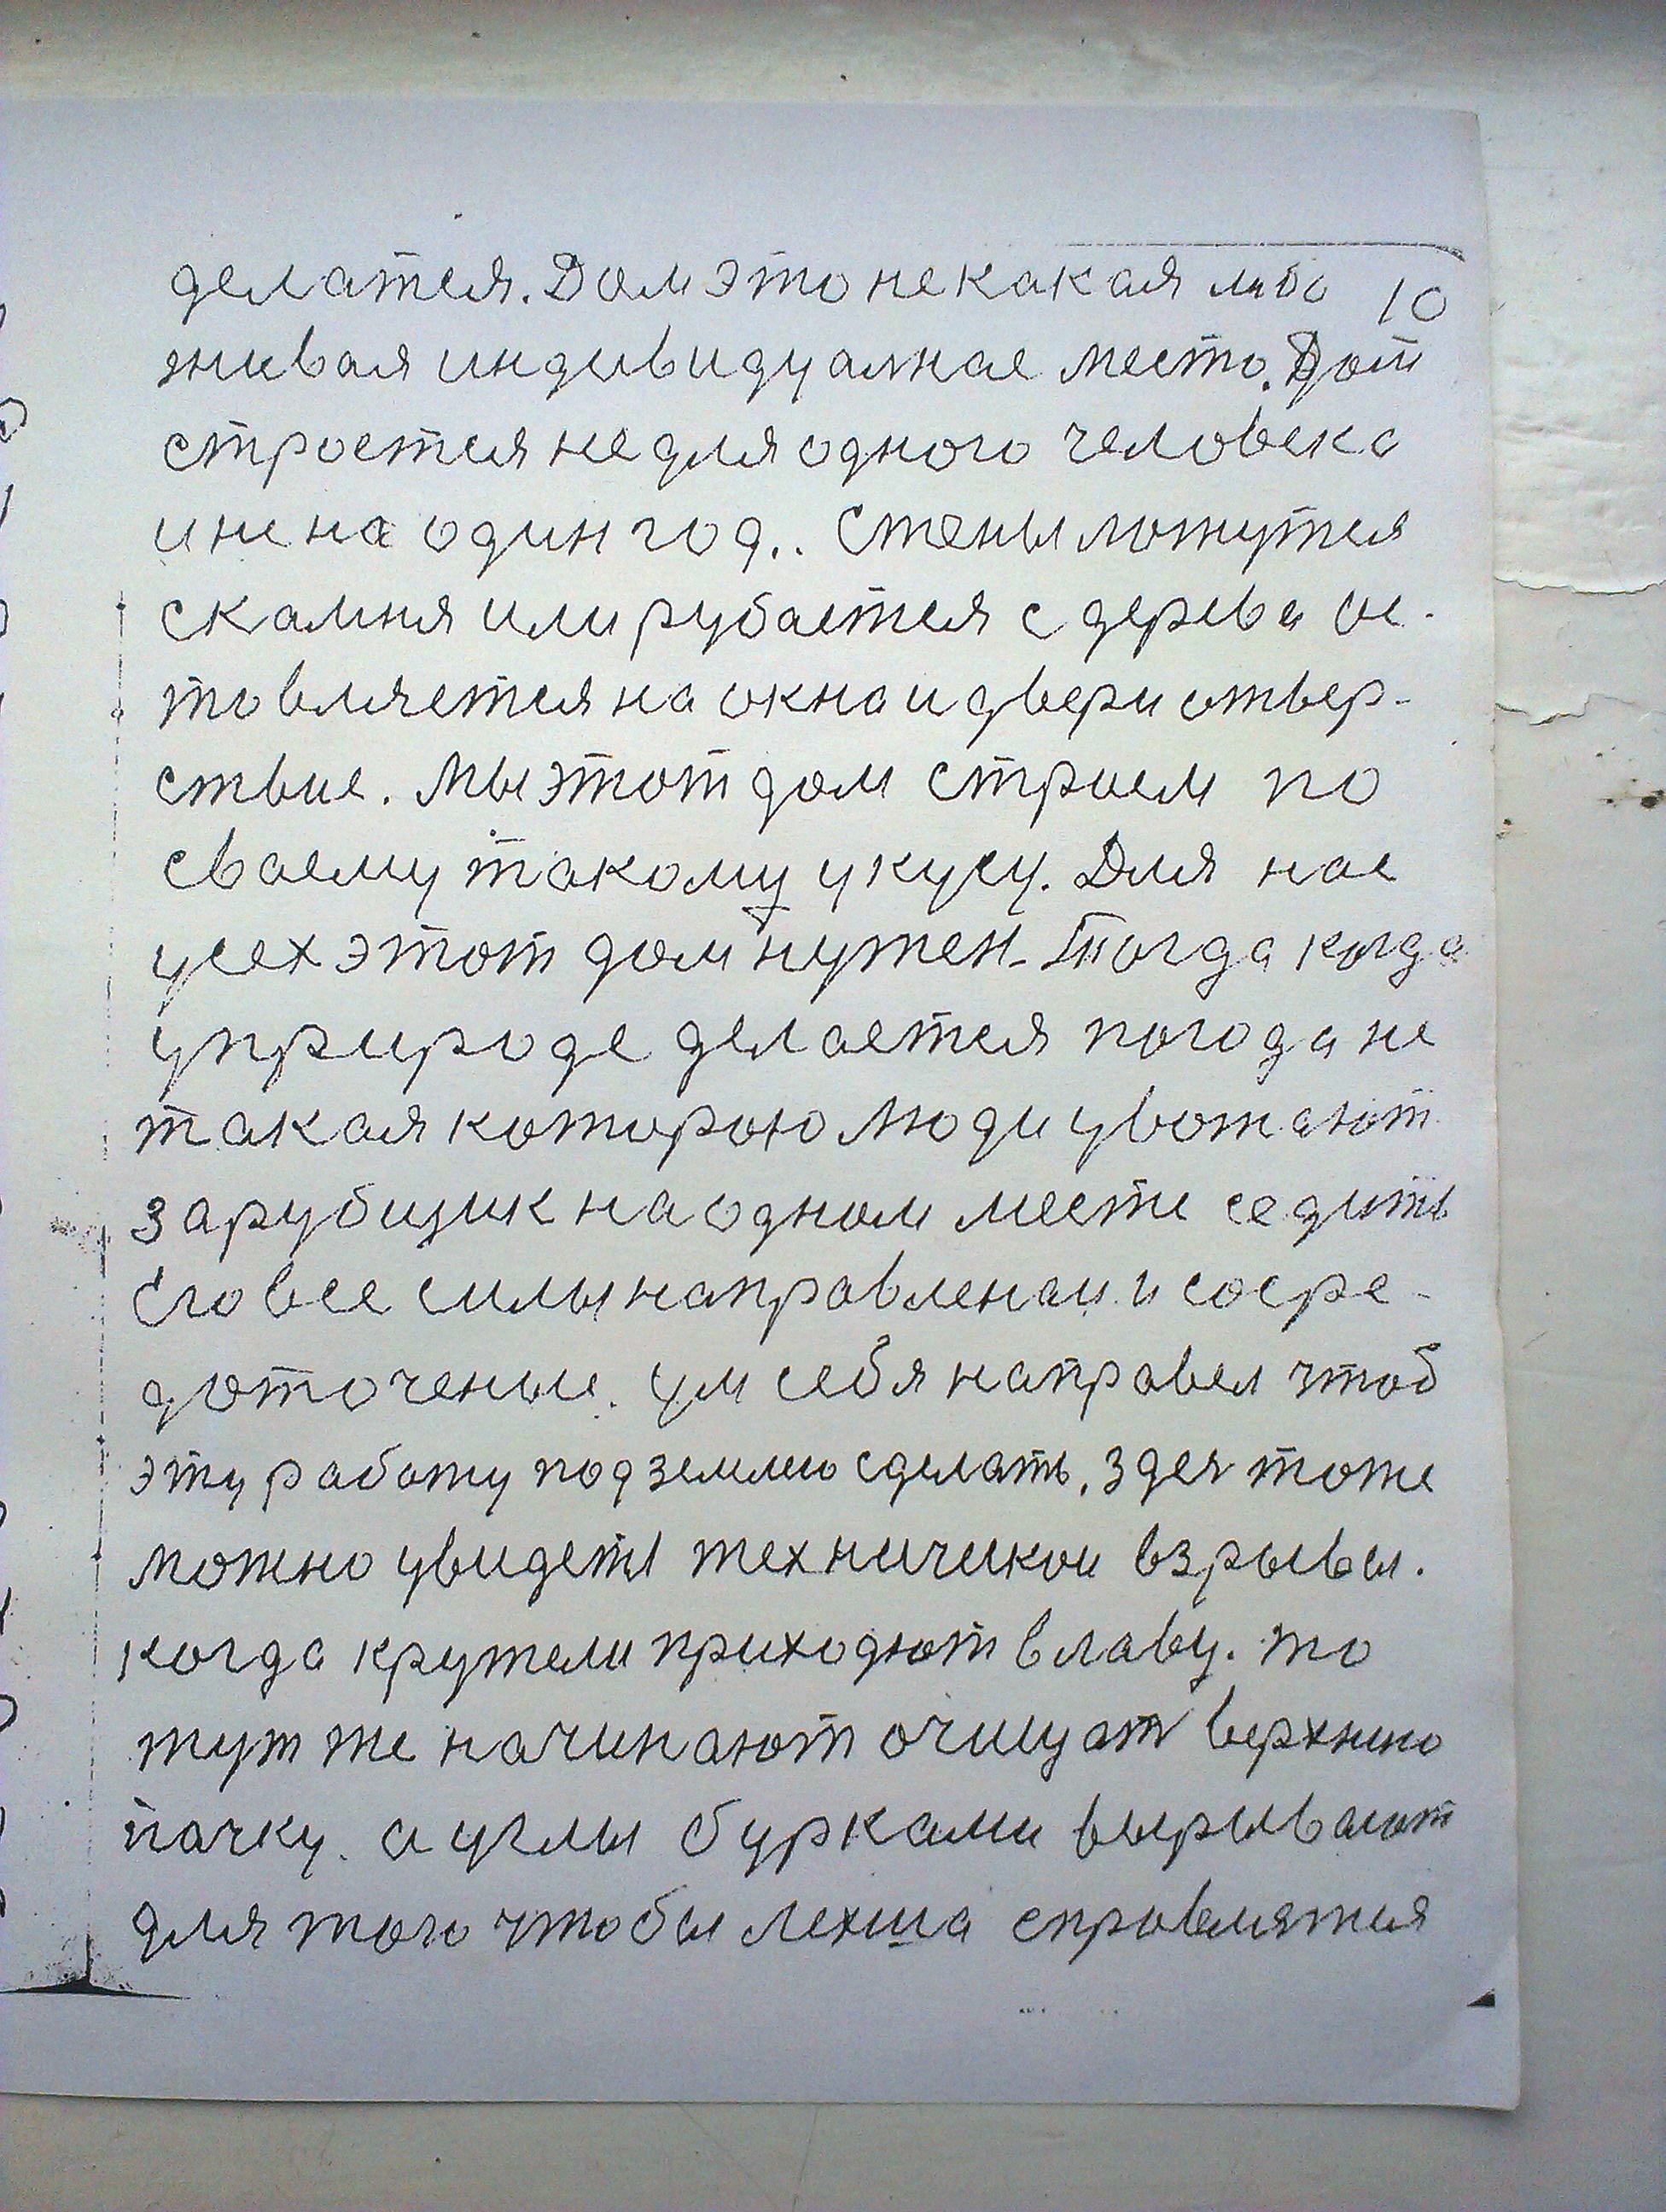 делатся. Дом это не какая либо 10
живая индивидуалная место. Дом
строется не для одного человека
и не на один год.. Стены ложутся
с камня или рубается с дерева ос-
товляется на окна и двери отвер-
ствие. Мы этот дом строем по
сваему такому укусу. Для нас
усех этот дом нужен. Тогда когда
у природе делается погода не
такая которою люди увожают
зарубщик на одном месте седить
Его все силы направленаи и сосре-
доточеные. Ум себя направел чтоб
эту работу под землею сделать. Здея тоже
можно увидеть техничикои взрывы.
когда крутели приходют в лаву. то
тут же начинают очищат верхнию
пачку. а углы бурками вырывают
для того чтобы лехша справлятся